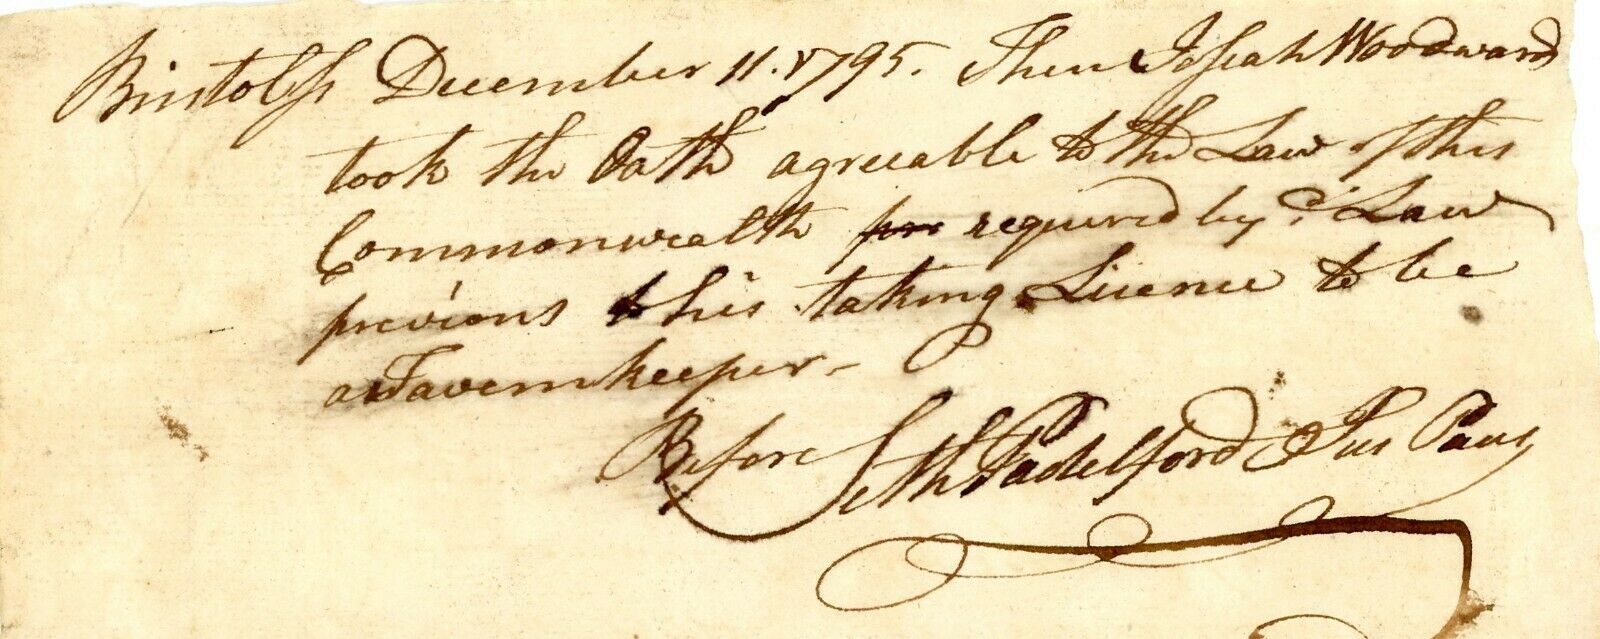 Bristol ss December 11. 1795. Then Josiah Woodward
took the Oath agreeable to the Law of this
Commonwealth required by Law
previous to his taking Licence to be
a Tavernkeeper -
Before Seth Padelford Jus Pacis